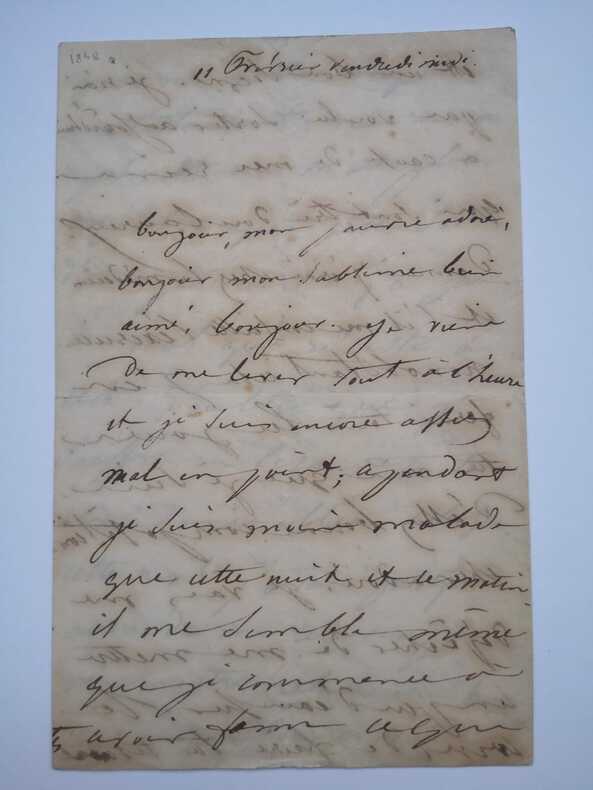 11 Février vendredi midi.
bonjour, mon pauvre adoré,
bonjour mon sublime bien
aimé, bonjour. Je viens
de me lever tout à l'heure
et je suis encore assez
mal en point; cependant
je suis moins malade
que cette nuit et ce matin
il me semble même
que je commence à
avoir faim ce qui